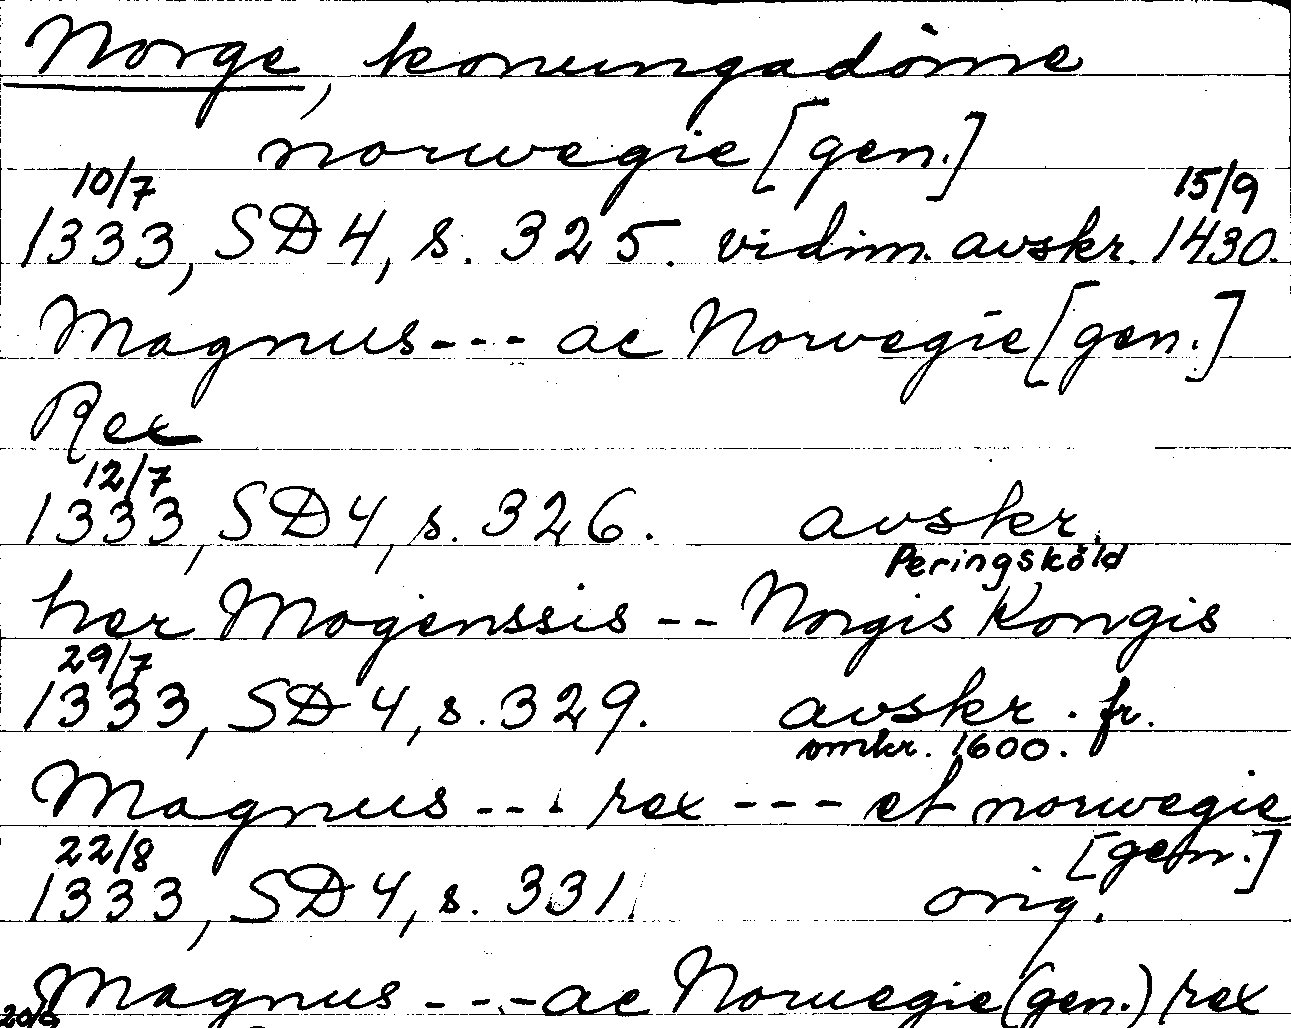 Norge, konungadöme
norwegie [gen.]
10/7 15/9
1333, SD 4, s. 325. vidim. avskr. 1430.
Magnus --- ac Norwegie [gen.]
Rex
12/7
1333, SD 4, s. 326. avskr.
Peringsköld
her Mogenssis -- Norgis Kongis
29/7
1333, SD 4, s. 329. avskr. fr.
omkr. 1600.
Magnus --- rex --- et norwegie
22/8 [gen.]
1333, SD 4, s. 331. orig.
Magnus --- ac Norwegie (gen.) rex
20/9